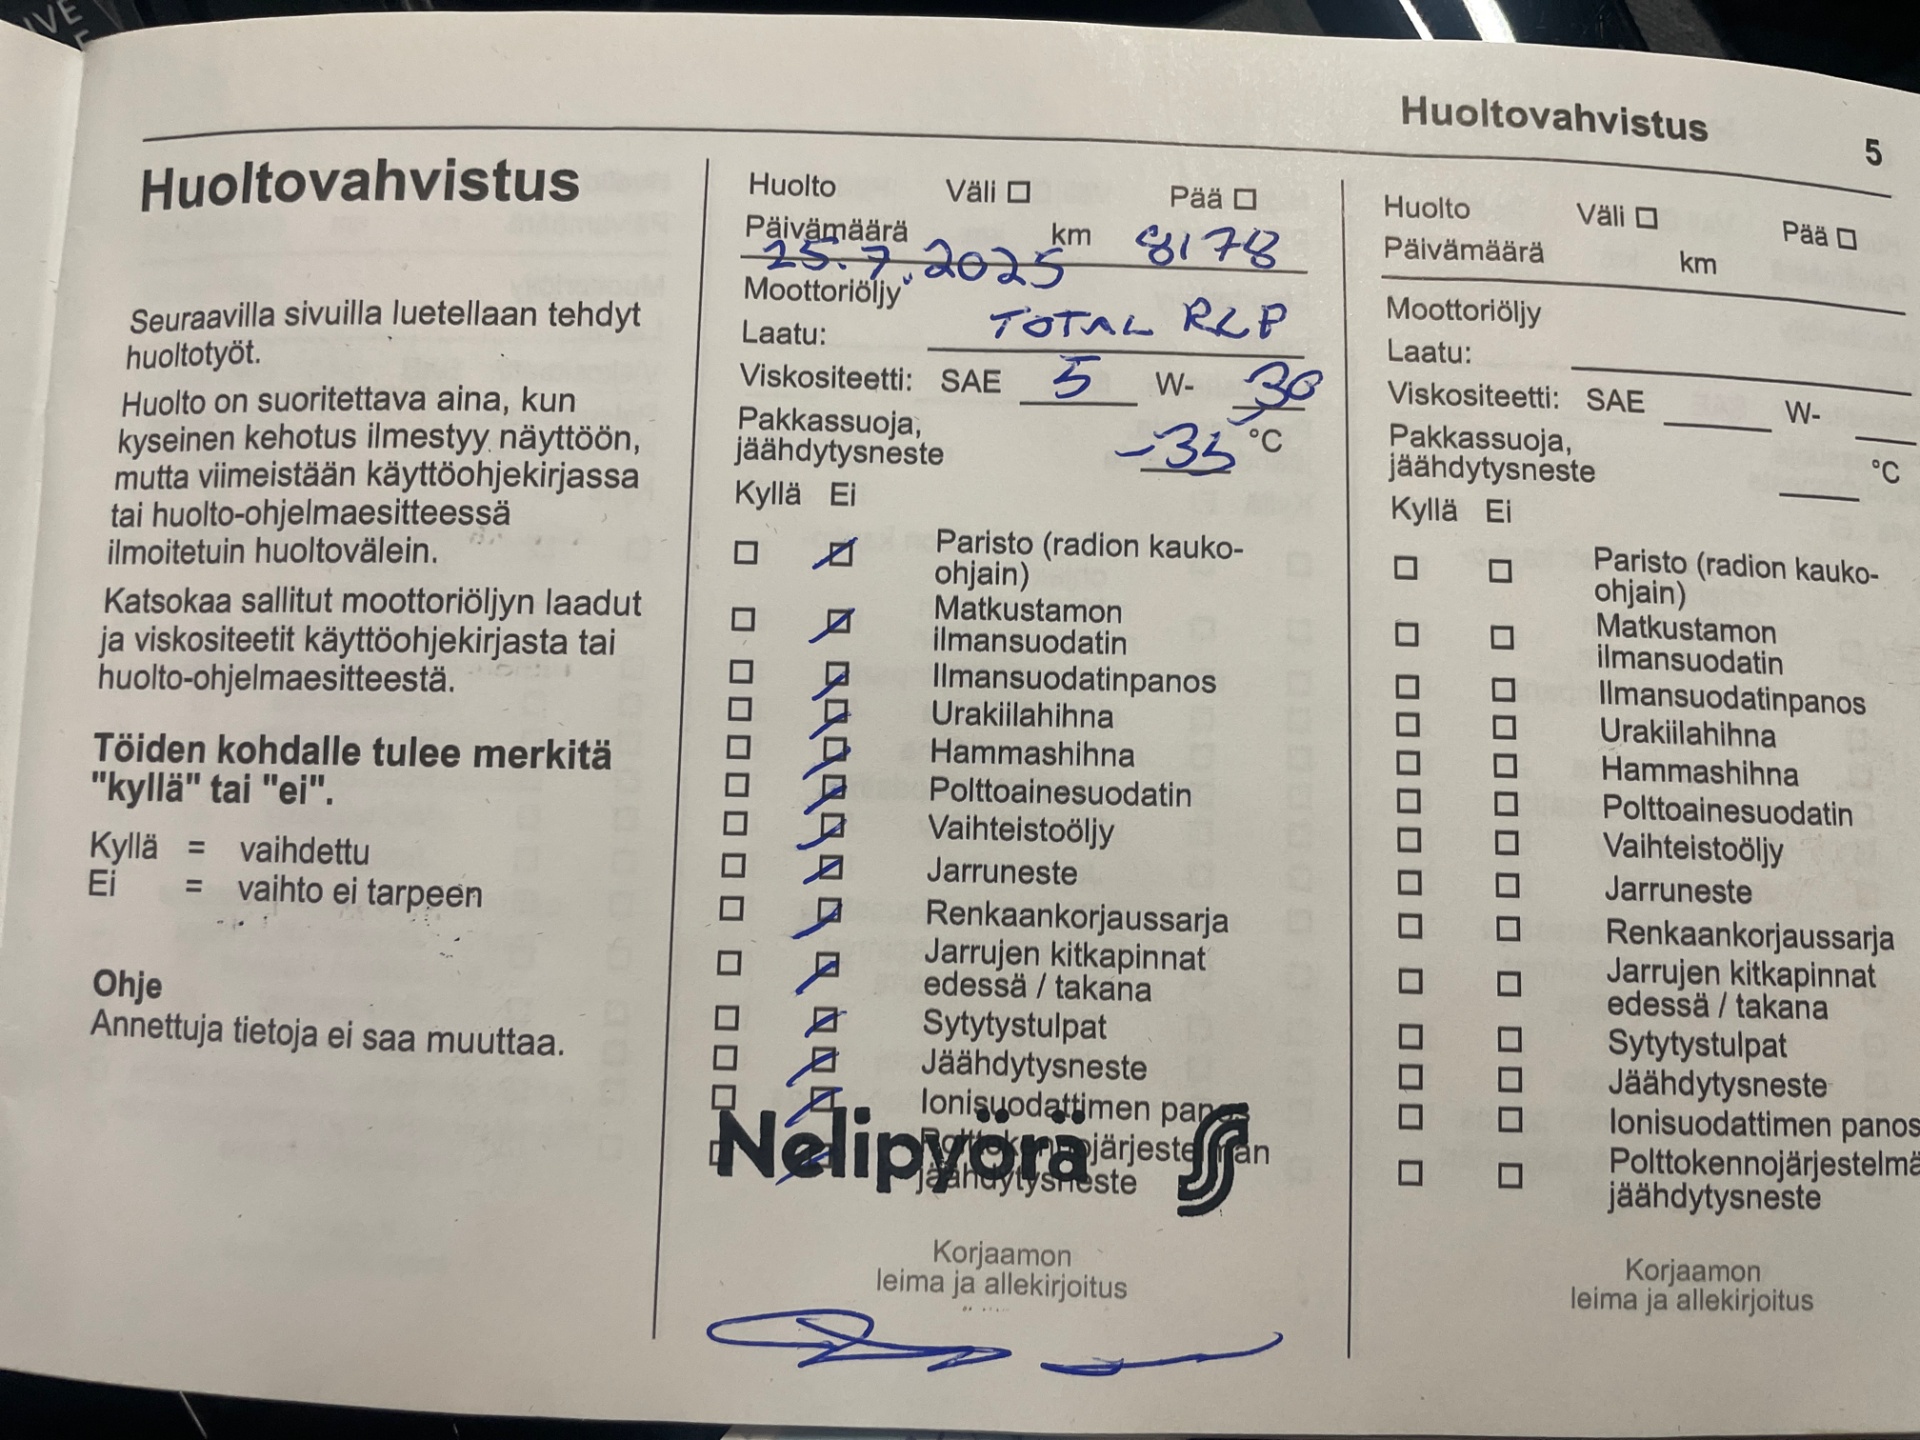 Huoltovahvistus
5
Huoltovahvistus
Seuraavilla sivuilla luetellaan tehdyt
huoltotyöt.
Huolto on suoritettava aina, kun
kyseinen kehotus ilmestyy näyttöön,
mutta viimeistään käyttöohjekirjassa
tai huolto-ohjelmaesitteessä
ilmoitetuin huoltovälein.
Katsokaa sallitut moottoriöljyn laadut
ja viskositeetit käyttöohjekirjasta tai
huolto-ohjelmaesitteestä.
Töiden kohdalle tulee merkitä
"kyllä" tai "ei".
Kyllä = vaihdettu
Ei = vaihto ei tarpeen
Ohje
Annettuja tietoja ei saa muuttaa.
Huolto Väli Pää
Päivämäärä km 8178
25.7.2025
Moottoriöljy
Laatu: TOTAL RLP
Viskositeetti: SAE 5 W- 30
Pakkassuoja,
jäähdytysneste -35 °C
Kyllä Ei
Paristo (radion kauko-
ohjain)
Matkustamon
ilmansuodatin
Ilmansuodatinpanos
Urakiilahihna
Hammashihna
Polttoainesuodatin
Vaihteistoöljy
Jarruneste
Renkaankorjaussarja
Jarrujen kitkapinnat
edessä / takana
Sytytystulpat
Jäähdytysneste
Ionisuodattimen panos
Polttokennojärjestelmän
jäähdytysneste
Nelipyörä
Korjaamon
leima ja allekirjoitus
Huolto Väli Pää
Päivämäärä km
Moottoriöljy
Laatu:
Viskositeetti: SAE W-
Pakkassuoja,
jäähdytysneste °C
Kyllä Ei
Paristo (radion kauko-
ohjain)
Matkustamon
ilmansuodatin
Ilmansuodatinpanos
Urakiilahihna
Hammashihna
Polttoainesuodatin
Vaihteistoöljy
Jarruneste
Renkaankorjaussarja
Jarrujen kitkapinnat
edessä / takana
Sytytystulpat
Jäähdytysneste
Ionisuodattimen panos
Polttokennojärjestelmä
jäähdytysneste
Korjaamon
leima ja allekirjoitus